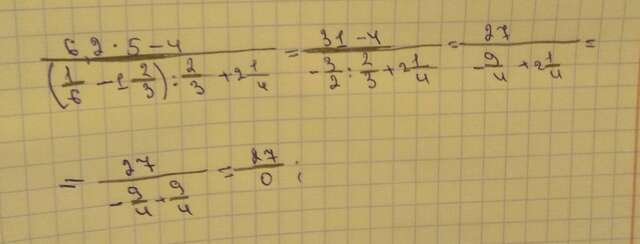 \frac{6,2 \cdot 5 - 4}{\left(\frac{1}{6} - 1\frac{2}{3}\right) : \frac{2}{3} + 2\frac{1}{4}} = \frac{31 - 4}{-\frac{3}{2} : \frac{2}{3} + 2\frac{1}{4}} = \frac{27}{-\frac{9}{4} + 2\frac{1}{4}} =
= \frac{27}{-\frac{9}{4} + \frac{9}{4}} = \frac{27}{0};